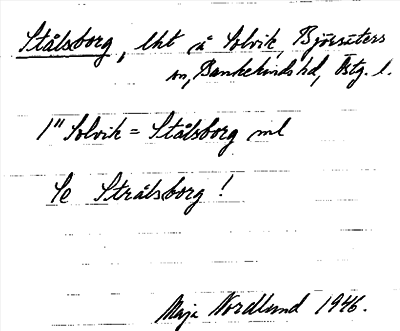 Stålsborg, lht å Solvik, Björsäters
sn, Bankekinds hd, Östg. l.
1" Solvik = Stålsborg ml
Se Strålsborg!
Maja Nordlund 1946.